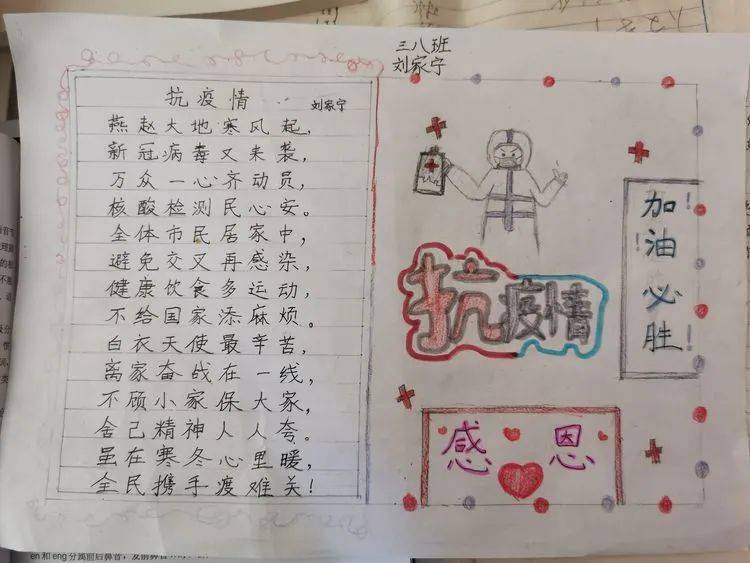 三八班
刘家宁
抗疫情
刘家宁
燕赵大地寒风起，
新冠病毒又来袭，
万众一心齐动员，
核酸检测民心安。
全体市民居家中，
避免交叉再感染，
健康饮食多运动，
不给国家添麻烦。
白衣天使最辛苦，
离家奋战在一线，
不顾小家保大家，
舍己精神人人夸。
虽在寒冬心里暖，
全民携手渡难关！
抗疫情
加油必胜！
感恩
en和eng分属前后鼻音，发前鼻音